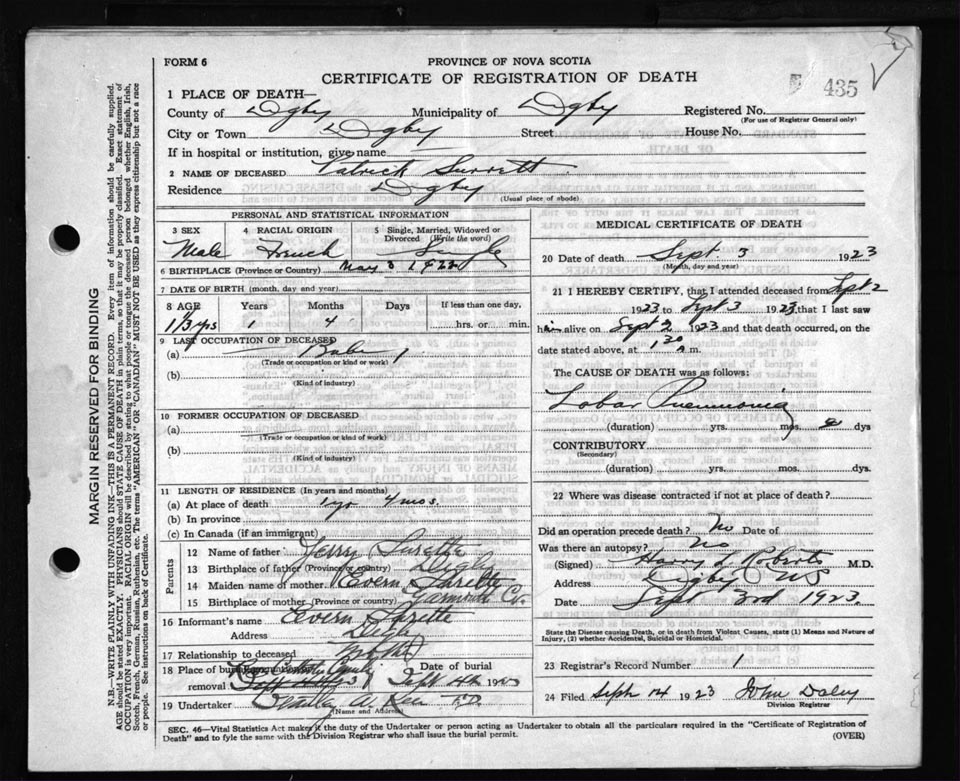 FORM 6
PROVINCE OF NOVA SCOTIA
CERTIFICATE OF REGISTRATION OF DEATH
435
1 PLACE OF DEATH—
County of Digby Municipality of Digby Registered No.
(For use of Registrar General only)
City or Town Digby Street House No.
If in hospital or institution, give name
2 NAME OF DECEASED Patrick Surrett
Residence Digby
(Usual place of abode)
PERSONAL AND STATISTICAL INFORMATION
3 SEX 4 RACIAL ORIGIN 5 Single, Married, Widowed or Divorced (Write the word)
Male French Single
6 BIRTHPLACE (Province or Country) May 3 1922
7 DATE OF BIRTH (month, day and year)
8 AGE Years Months Days If less than one day,
1/3 yrs 1 4 hrs. or min.
9 LAST OCCUPATION OF DECEASED
(a)
(Trade or occupation or kind or work)
(b)
(Kind of industry)
10 FORMER OCCUPATION OF DECEASED
(a)
(Trade or occupation or kind or work)
(b)
(Kind of industry)
11 LENGTH OF RESIDENCE (In years and months)
(a) At place of death 1 yr 4 mos.
(b) In province
(c) In Canada (if an immigrant)
Parents
12 Name of father Jerry Surette
13 Birthplace of father (Province or country) Digby
14 Maiden name of mother Evern Surette
15 Birthplace of mother (Province or country) Yarmouth Co.
16 Informant's name Evern Surette
Address Digby
17 Relationship to deceased Mother
18 Place of burial, removal
Date of burial
Sept 4th 1923
19 Undertaker
(Name and Address)
MEDICAL CERTIFICATE OF DEATH
20 Date of death Sept. 3 1923
(Month, day and year)
21 I HEREBY CERTIFY, that I attended deceased from Sept 2
1923 to Sept 3 1923, that I last saw
him alive on Sept 2 1923 and that death occurred, on
date stated above, at 1.30 a m.
The CAUSE OF DEATH was as follows:
Lobar Pneumonia
(duration) yrs. mos. 2 dys
CONTRIBUTORY
(Secondary)
(duration) yrs. mos. dys.
22 Where was disease contracted if not at place of death?
Did an operation precede death? No Date of
Was there an autopsy? No
(Signed) Harry L Roberts M.D.
Address Digby NS
Date Sept 3rd 1923.
State the Disease causing Death, or in death from Violent Causes, state (1) Means and Nature of
Injury, (2) whether Accidental, Suicidal or Homicidal.
23 Registrar's Record Number 1
24 Filed Sept 14 1923 John Daley
Division Registrar
SEC. 46—Vital Statistics Act makes it the duty of the Undertaker or person acting as Undertaker to obtain all the particulars required in the "Certificate of Registration of
Death" and to fyle the same with the Division Registrar who shall issue the burial permit.
(OVER)
MARGIN RESERVED FOR BINDING
N.B.—WRITE PLAINLY WITH UNFADING INK—THIS IS A PERMANENT RECORD. Every item of information should be carefully supplied.
AGE should be stated EXACTLY. PHYSICIANS should STATE CAUSE OF DEATH in plain terms, so that it may be properly classified. Exact statement of
OCCUPATION is very important. RACIAL ORIGIN will be described by stating to what people or tongue the deceased person belonged whether English, Irish,
Scotch, French, German, Russian, Ruthenian, etc. The terms "AMERICAN" OR "CANADIAN" MUST NOT BE USED as they express citizenship but not a race
or people. See instructions on back of Certificate.